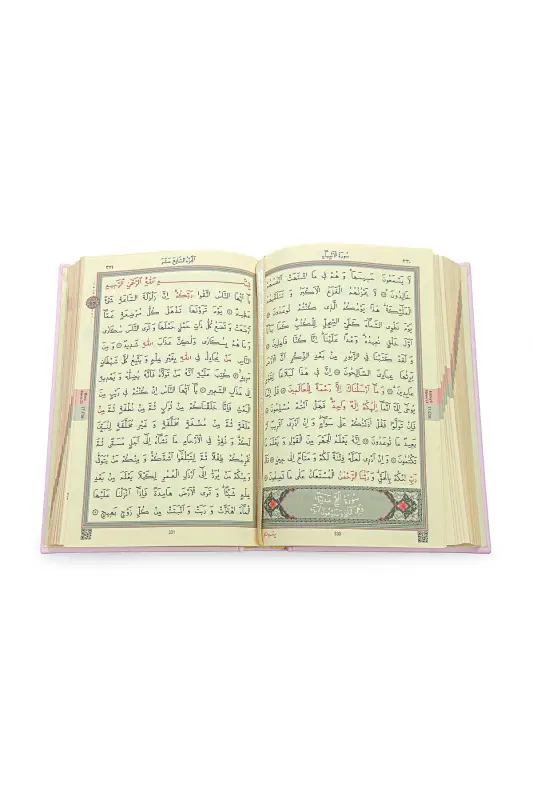 سُورَةُ الْاَنْبِيَاءِ
٣٣٠
لَا يَسْمَعُونَ حَسِيسَهَا وَهُمْ فِي مَا اشْتَهَتْ اَنْفُسُهُمْ
خَالِدُونَ لَا يَحْزُنُهُمُ الْفَزَعُ الْاَكْبَرُ وَتَتَلَقّٰيهُمُ
الْمَلٰئِكَةُ هٰذَا يَوْمُكُمُ الَّذِي كُنْتُمْ تُوعَدُونَ
يَوْمَ نَطْوِي السَّمَاءَ كَطَيِّ السِّجِلِّ لِلْكُتُبِ كَمَا بَدَأْنَا
اَوَّلَ خَلْقٍ نُعِيدُهُ وَعْدًا عَلَيْنَا اِنَّا كُنَّا فَاعِلِينَ
وَلَقَدْ كَتَبْنَا فِي الزَّبُورِ مِنْ بَعْدِ الذِّكْرِ اَنَّ الْاَرْضَ
يَرِثُهَا عِبَادِيَ الصَّالِحُونَ اِنَّ فِي هٰذَا لَبَلَاغًا لِقَوْمٍ
عَابِدِينَ وَمَا اَرْسَلْنَاكَ اِلَّا رَحْمَةً لِلْعَالَمِينَ قُلْ اِنَّمَا
يُوحٰى اِلَيَّ اَنَّمَا اِلٰهُكُمْ اِلٰهٌ وَاحِدٌ فَهَلْ اَنْتُمْ مُسْلِمُونَ
فَاِنْ تَوَلَّوْا فَقُلْ اٰذَنْتُكُمْ عَلٰى سَوَاءٍ وَاِنْ اَدْرِي اَقَرِيبٌ اَمْ
بَعِيدٌ مَا تُوعَدُونَ اِنَّهُ يَعْلَمُ الْجَهْرَ مِنَ الْقَوْلِ وَيَعْلَمُ مَا
تَكْتُمُونَ وَاِنْ اَدْرِي لَعَلَّهُ فِتْنَةٌ لَكُمْ وَمَتَاعٌ اِلٰى حِينٍ قَالَ
رَبِّ احْكُمْ بِالْحَقِّ وَرَبُّنَا الرَّحْمٰنُ الْمُسْتَعَانُ عَلٰى مَا تَصِفُونَ
330
اَلْجُزْءُ السَّابِعَ عَشَرَ
٣٣١
بِسْمِ اللّٰهِ الرَّحْمٰنِ الرَّحِيمِ
يَا اَيُّهَا النَّاسُ اتَّقُوا رَبَّكُمْ اِنَّ زَلْزَلَةَ السَّاعَةِ شَيْءٌ
عَظِيمٌ يَوْمَ تَرَوْنَهَا تَذْهَلُ كُلُّ مُرْضِعَةٍ عَمَّا
اَرْضَعَتْ وَتَضَعُ كُلُّ ذَاتِ حَمْلٍ حَمْلَهَا وَتَرَى النَّاسَ سُكَارٰى
وَمَا هُمْ بِسُكَارٰى وَلٰكِنَّ عَذَابَ اللّٰهِ شَدِيدٌ وَمِنَ
النَّاسِ مَنْ يُجَادِلُ فِي اللّٰهِ بِغَيْرِ عِلْمٍ وَيَتَّبِعُ كُلَّ شَيْطَانٍ
مَرِيدٍ كُتِبَ عَلَيْهِ اَنَّهُ مَنْ تَوَلَّاهُ فَاَنَّهُ يُضِلُّهُ وَيَهْدِيهِ
اِلٰى عَذَابِ السَّعِيرِ يَا اَيُّهَا النَّاسُ اِنْ كُنْتُمْ فِي رَيْبٍ مِنَ
الْبَعْثِ فَاِنَّا خَلَقْنَاكُمْ مِنْ تُرَابٍ ثُمَّ مِنْ نُطْفَةٍ ثُمَّ مِنْ
عَلَقَةٍ ثُمَّ مِنْ مُضْغَةٍ مُخَلَّقَةٍ وَغَيْرِ مُخَلَّقَةٍ لِنُبَيِّنَ
لَكُمْ وَنُقِرُّ فِي الْاَرْحَامِ مَا نَشَاءُ اِلٰى اَجَلٍ مُسَمًّى ثُمَّ
نُخْرِجُكُمْ طِفْلًا ثُمَّ لِتَبْلُغُوا اَشُدَّكُمْ وَمِنْكُمْ مَنْ يُتَوَفّٰى
وَمِنْكُمْ مَنْ يُرَدُّ اِلٰى اَرْذَلِ الْعُمُرِ لِكَيْلَا يَعْلَمَ مِنْ بَعْدِ
عِلْمٍ شَيْئًا وَتَرَى الْاَرْضَ هَامِدَةً فَاِذَا اَنْزَلْنَا عَلَيْهَا
الْمَاءَ اهْتَزَّتْ وَرَبَتْ وَاَنْبَتَتْ مِنْ كُلِّ زَوْجٍ بَهِيجٍ
331